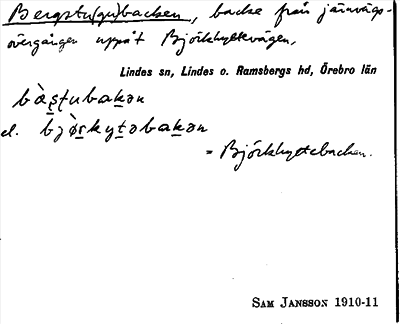 Bergstu(gu)backen, backe från järnvägs-
övergången uppåt Björkhyttevägen.
Lindes sn, Lindes o. Ramsbergs hd, Örebro län
bæ̀s̱ṯubaḵən
el. bjø̀ṟsḵyṯəbaḵən
= Björkhyttebacken.
SAM JANSSON 1910-11